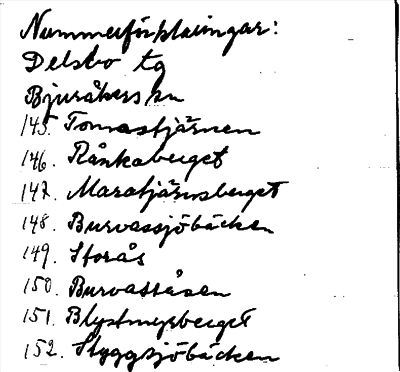 Nummerförklaringar:
Delsbo tg
Bjuråkers sn
145. Tomastjärnen
146. Rånkaberget
147. Maratjärnsberget
148. Burvassjöbäcken
149. Storås
150. Burvassåsen
151. Blystmyrberget
152. Styggsjöbäcken